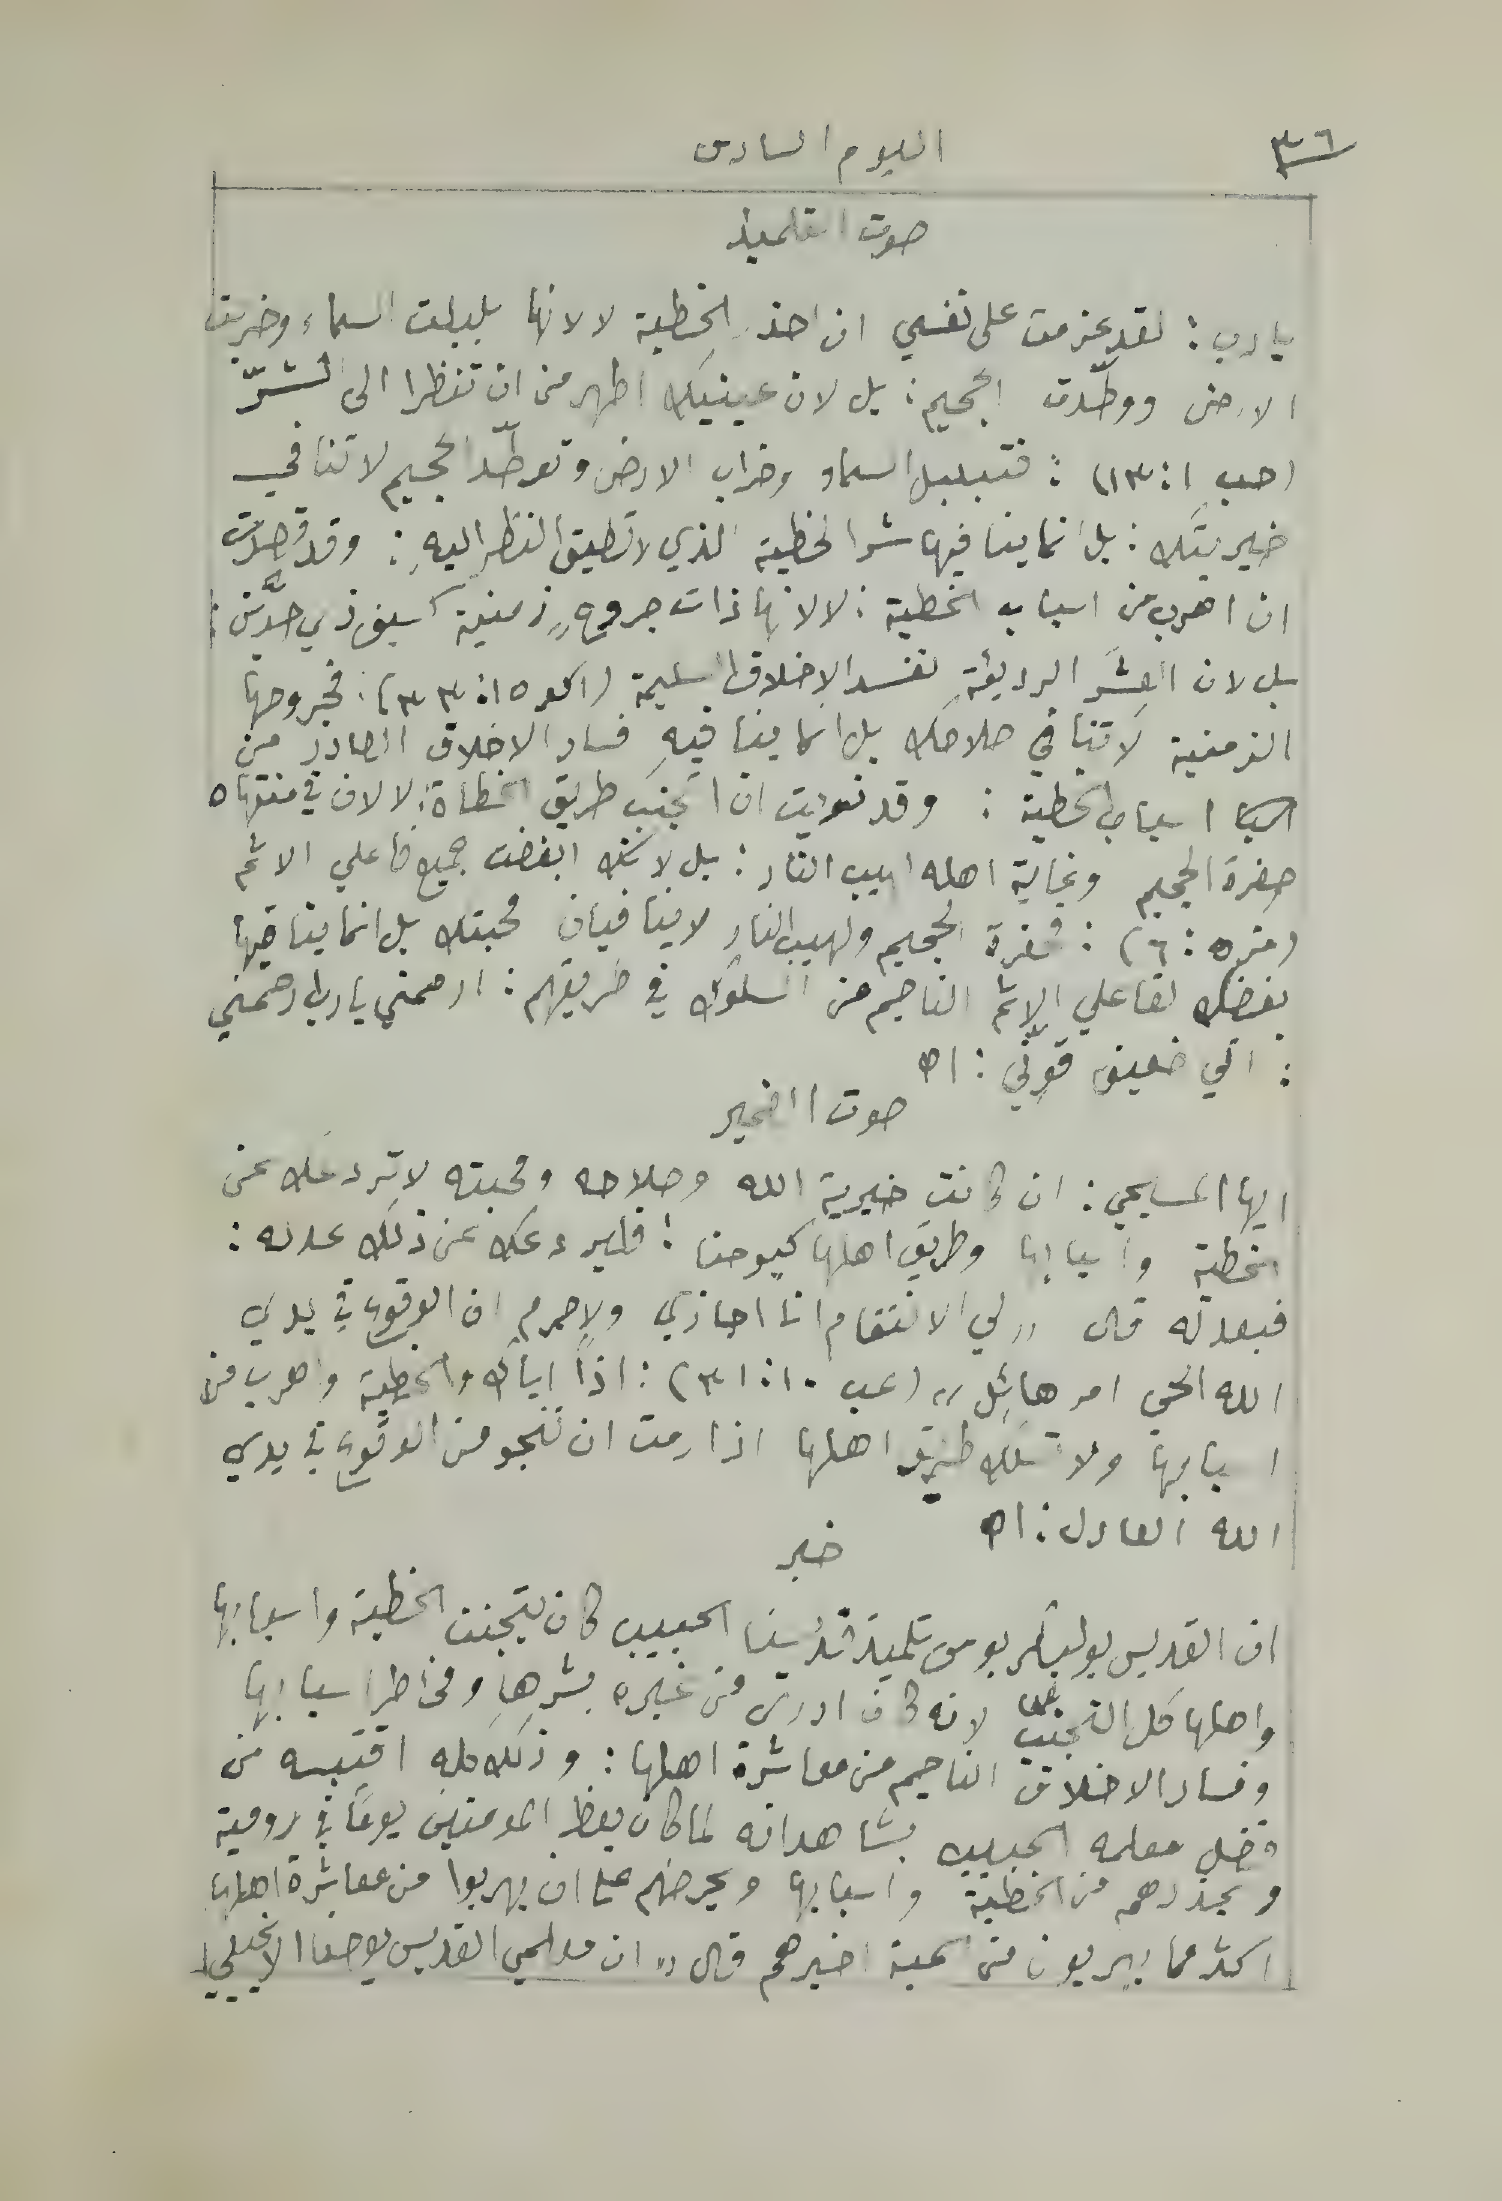 ٣٦
اليوم السادس
صوت التلميذ
يا رب : لقد عزمت على نفسي ان احذر الخطية لا لانها بلبلت السماء وخربت
الارض ووطّدت الجحيم : بل لان عينيك اطهر من ان تنظرا الى الشرّ
(حب ١ : ١٣) : فتبلبل السماء وخراب الارض وتوطّد الجحيم لا تنافي
خيريتك : بل انما ينافيها شر الخطية الذي لا تطيق النظر اليهِ : وقد قصدت
ان اهرب من اسباب الخطية : لا لانها ذات جروحٍ زمنية كسيف ذي حدَّين :
بل لان العِشَر الرديئةِ تفسد الاخلاق السليمة (١كو ١٥ : ٣٣) : فجروحها
الزمنية لا تنافي صلاحك بل انما ينافيهِ فساد الاخلاق الصادر من
اسباب الخطية : وقد نويت ان اتجنّب طريق الخطاة : لا لان في منتهاه
حفرة الجحيم ونهاية اهله لهيب النار : بل لانك ابغضت جميع فاعلي الاثم
(مز ٥ : ٦) : فحفرة الجحيم ولهيب النار لا ينافيان محبتك بل انما ينافيها
بغضك لفاعلي الاثم الناجم من السلوك في طريقهم : ارحمني يا رب ارحمني
: اني ضعيف قوِّني : اه
صوت الضمير
ايها المسيحي : ان كانت خيرية الله وصلاحه ومحبته لا تردعك عن
الخطية واسبابها وطريق اهلها كيوحنا : فليردعك عن ذلك عدله :
فبعدله قال " لي الانتقام انا اجازي ولا جرم ان الوقوع في يدي
الله الحي امر هائِل " (عب ١٠ : ٣١) : اذاً اياك والخطية واهرب من
اسبابها ولا تسلك طريق اهلها اذا رمت ان تنجو من الوقوع في يدي
الله العادل : اه
خبر
ان القديس بوليكربوس تلميذ قدّيسنا الحبيب كان يتجنب الخطية واسبابها
واهلها كل التجنب لانه كان ادرى من غيره بشرها ومخاطر اسبابها
وفساد الاخلاق الناجم من معاشرة اهلها : وذلك كله اقتبسه من
فضل معلمه الحبيب بشاهد انه لما كان يعظ المومنين يوماً في رومية
ويحذرهم من الخطية واسبابها ويحرضهم على ان يهربوا من معاشرة اهلها
اكثر مما يهربون من الحية اخبرهم قال " ان معلمي القديس يوحنا الانجيلي